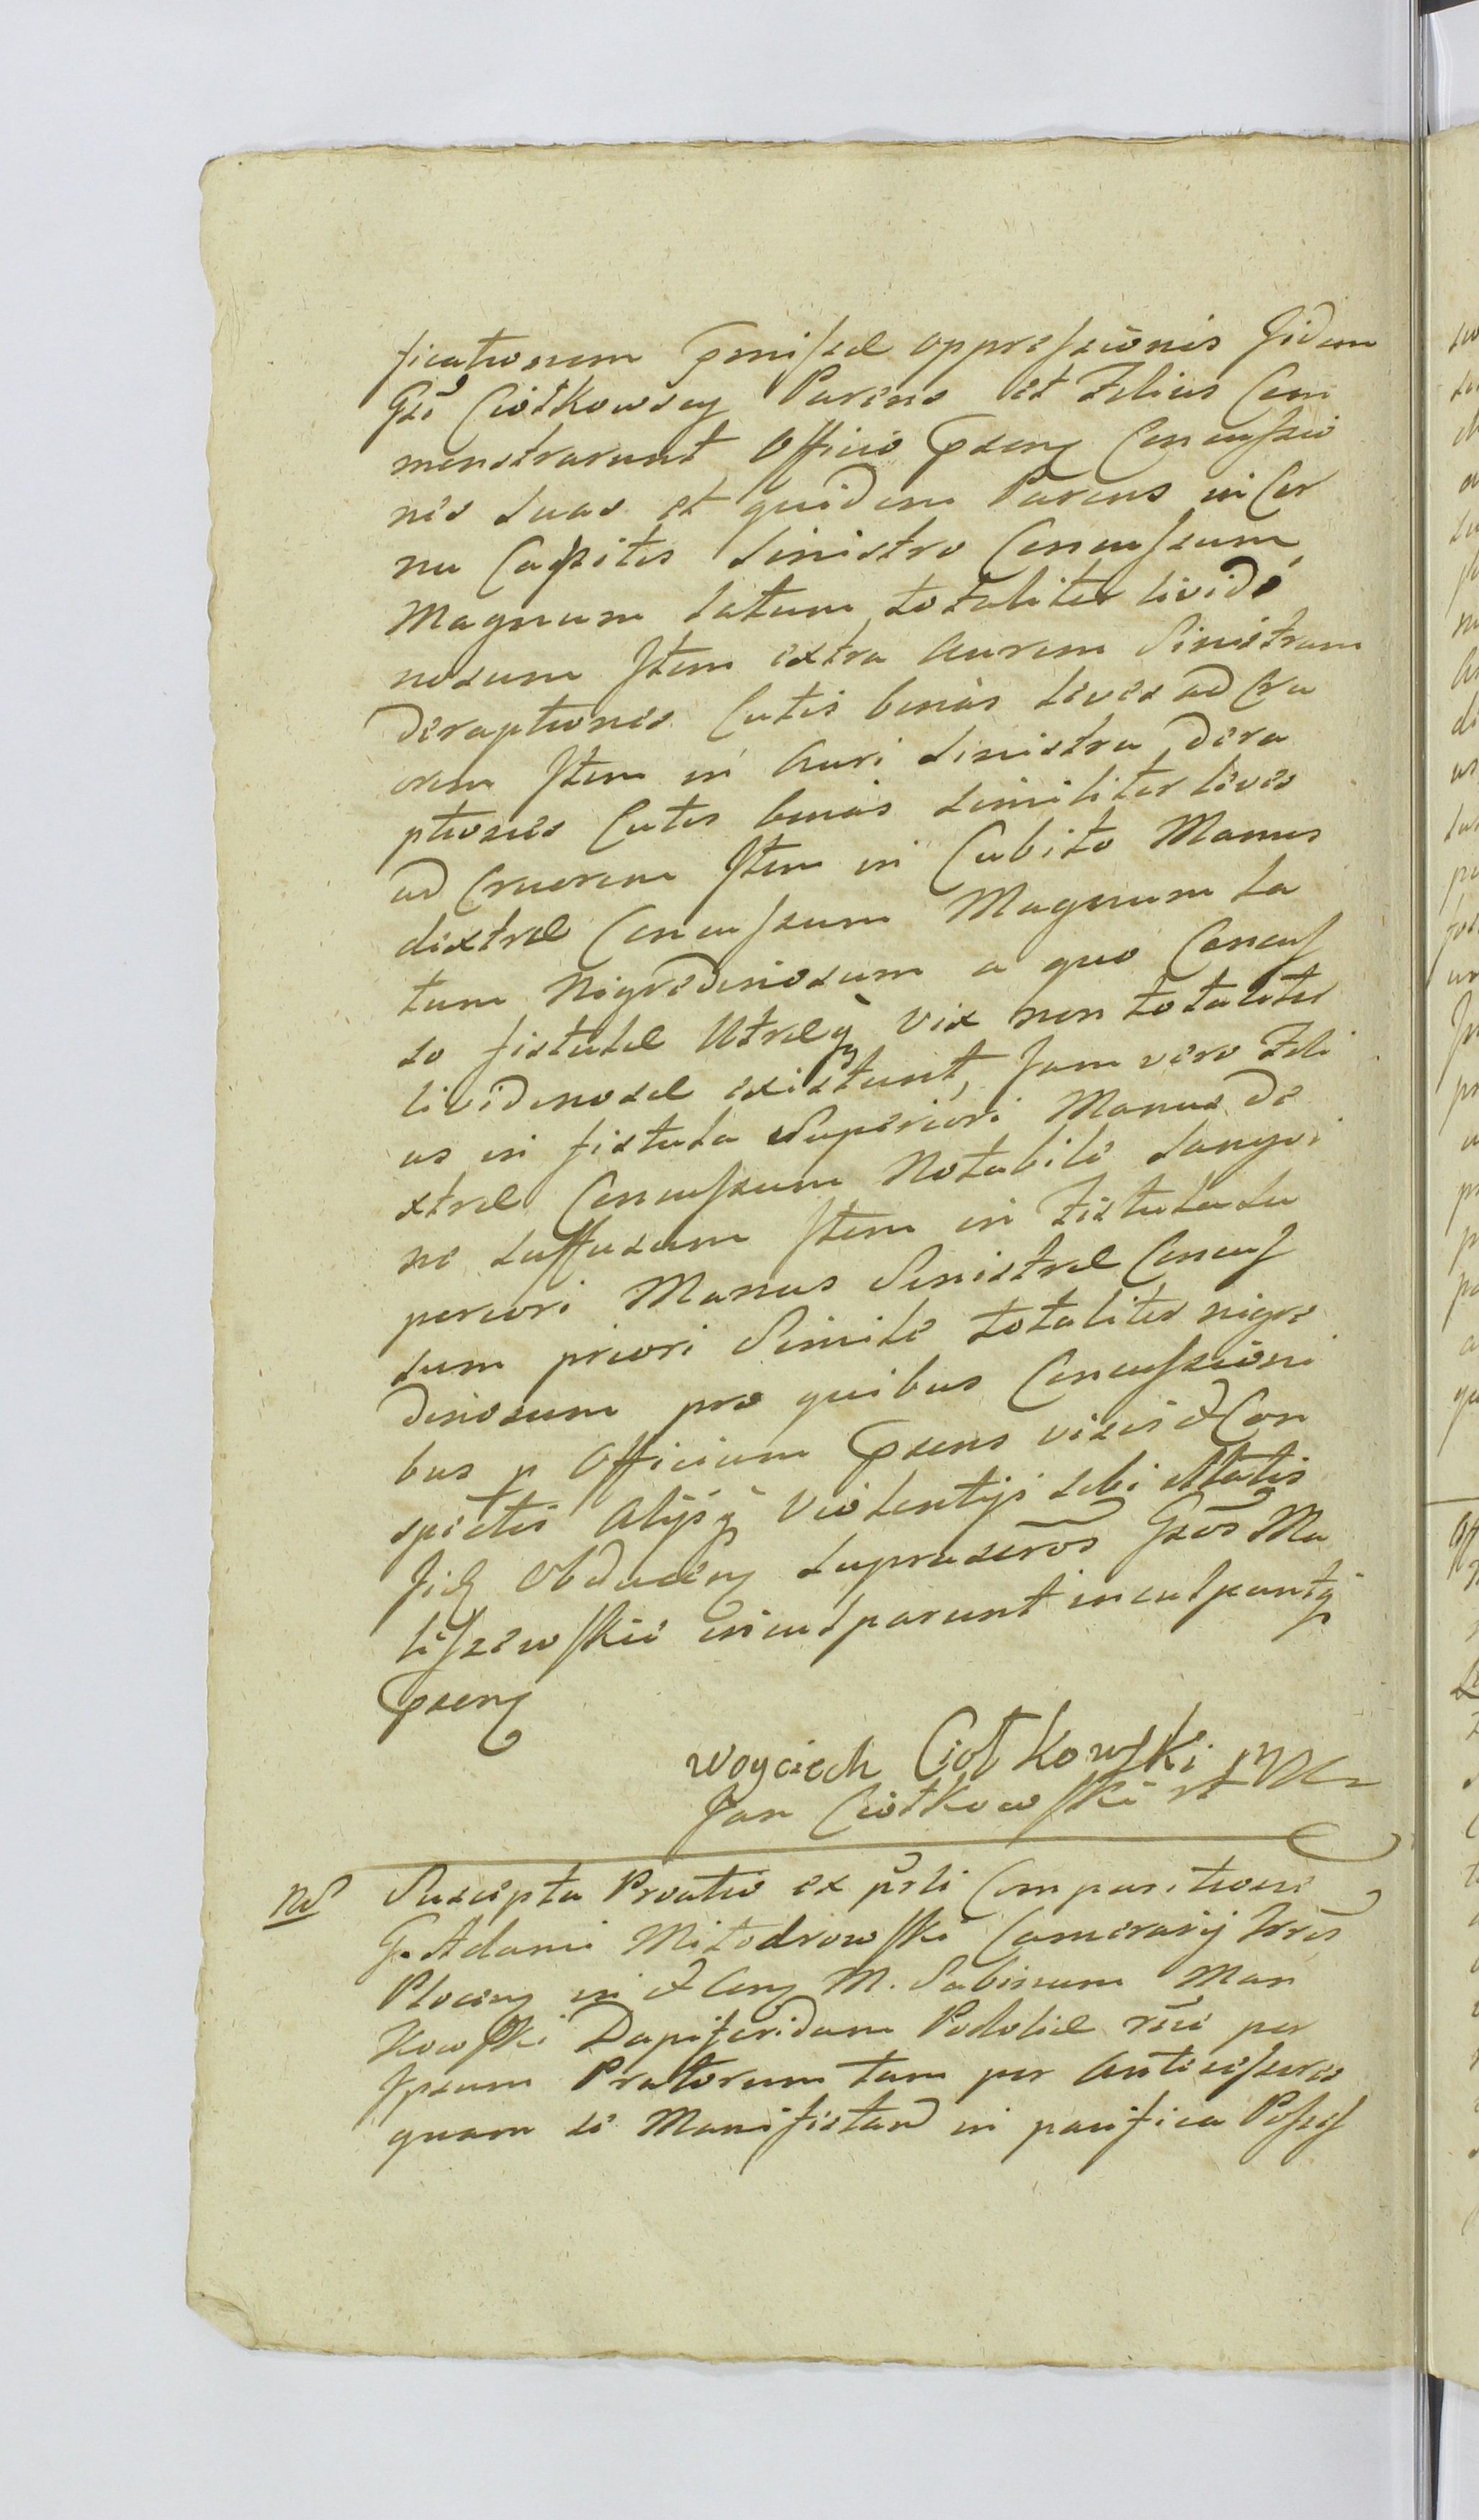 ficationem pmissæ oppressionis Iidem
Gsi Ciołkowscy Parens et Filius Com
monstrarunt Officio psenti Concussio
nes suas et quidem Parens in Cor
nu Capitis sinistro Concussum
Magnum latum totaliter livido
nosum Item extra aurem Sinistram
deraptiones Cutis binas leves ad Cru
orem Item in Auri sinistra dera
ptiones Cutis binas similiter leves
ad Cruorem Item in Cubito Manus
dextræ Concussum Magnum la
tum Nigredinosum a quo Concus
so fistulæ Utræq vix non totaliter
lividinosæ existunt, Jam vero Fili
us in fistula Superiori Manus de
xtræ Concussum Notabile sangvi
ne suffusum Item in Fistula su
periori Manus Sinistræ Concus
sum priori Simile totaliter nigre
dinosum pro quibus Concussioni
bus p Officium psens visis & Con
spectis Alijsq Violentijs sibi illatis
hic Obducen supraseros Gsos Ma
liszewskie inculparunt inculpantq
psen
Woyciech Ciołkowski mp
Jan Ciołkowski
Nd Suscepta Protio ex prli Comparitione
G. Adami Miłodrowski Camerarij Trris
Plocen in & Con M. Sabinum Man
kowski Dapiferidam Podoliæ rne per
Ipsum Pratorum tam per Antecessores
quam se Manifestan in pacifica Posses